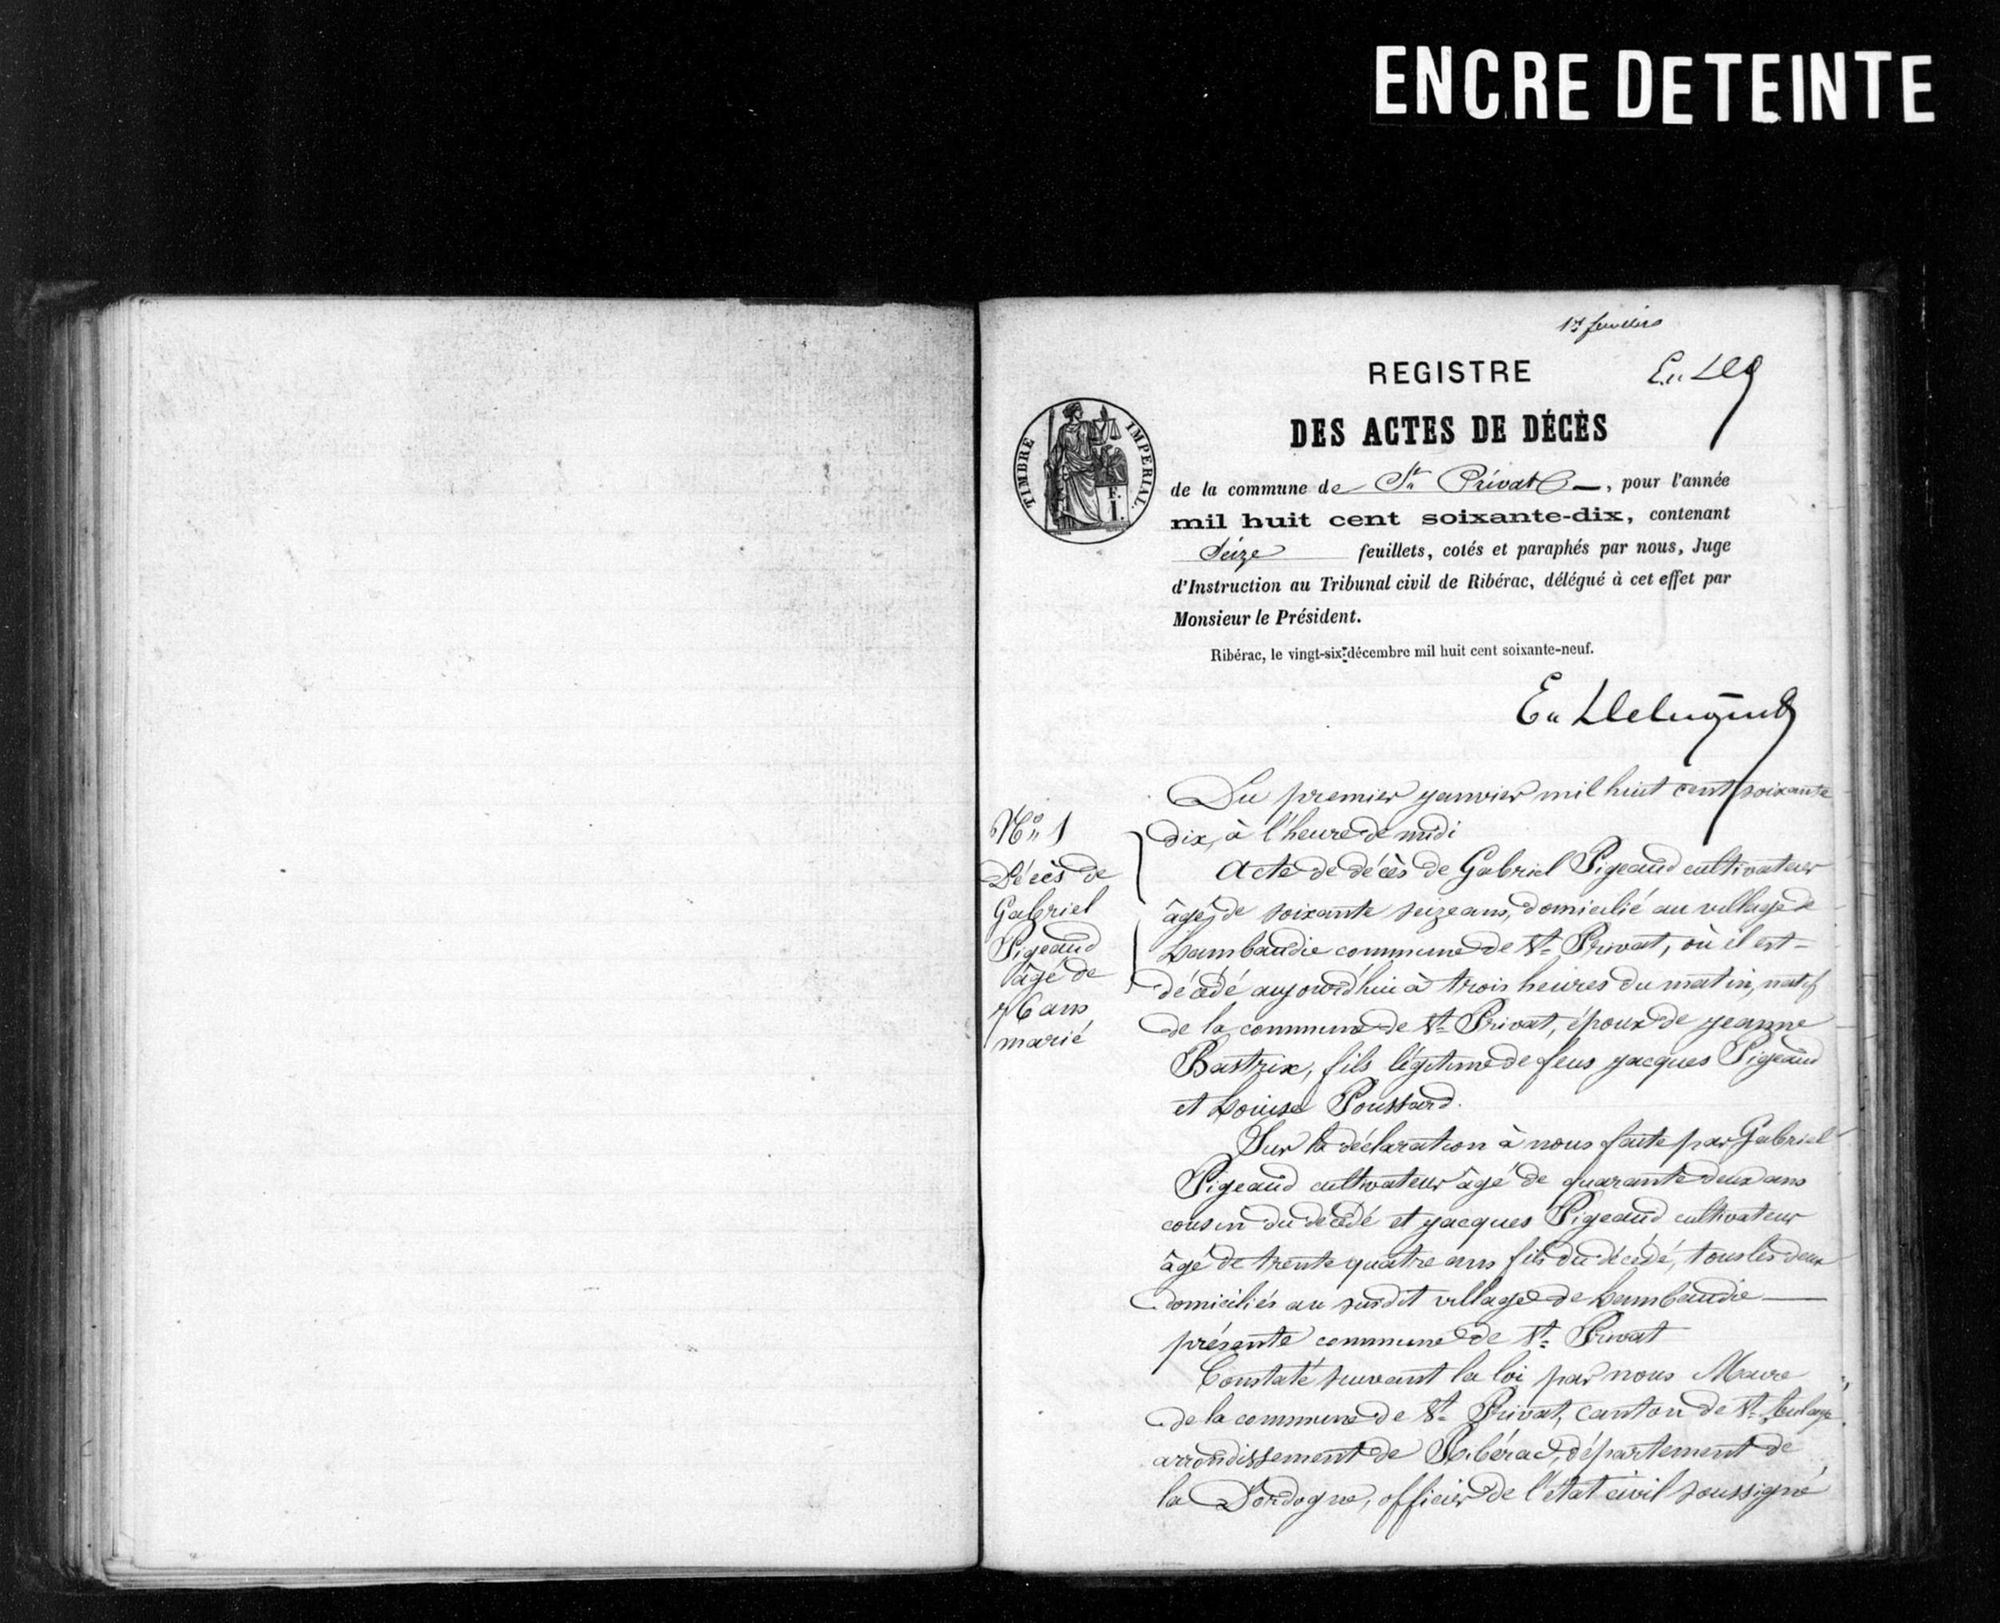 ENCRE DETEINTE
REGISTRE
DES ACTES DE DÉCÈS
TIMBRE IMPERIAL.
F.
I.
de la commune de St Privat, pour l'année
mil huit cent soixante-dix, contenant
Seize feuillets, cotés et paraphés par nous, Juge
d'Instruction au Tribunal civil de Ribérac, délégué à cet effet par
Monsieur le Président.
Ribérac, le vingt-six décembre mil huit cent soixante-neuf.
No 1
Décès de
Gabriel
Pigeaud
âgé de
76 ans
marié
Du premier janvier mil huit cent soixante
dix, à l'heure de midi
Acte de décès de Gabriel Pigeaud cultivateur
âgé, de soixante seize ans, domicilié au village de
Lambaudie commune de St Privat, où il est
décédé aujourd'hui à trois heures du matin, natif
de la commune de St Privat, époux de jeanne
Bastrix, fils légitime de feus jacques Pigeaud
et Louise Poussard.
Sur la déclaration à nous faite par Gabriel
Pigeaud cultivateur âgé de quarante deux ans
cousin du décédé et jacques Pigeaud cultivateur
âgé de trente quatre ans fils du décédé, tous les deux
domiciliés au susdit village de Lambaudie
présente commune de St Privat
Constaté suivant la loi par nous Maire
de la commune de St Privat, canton de St Aulaye
arrondissement de Ribérac, département de
la Dordogne, officier de l'état civil soussigné